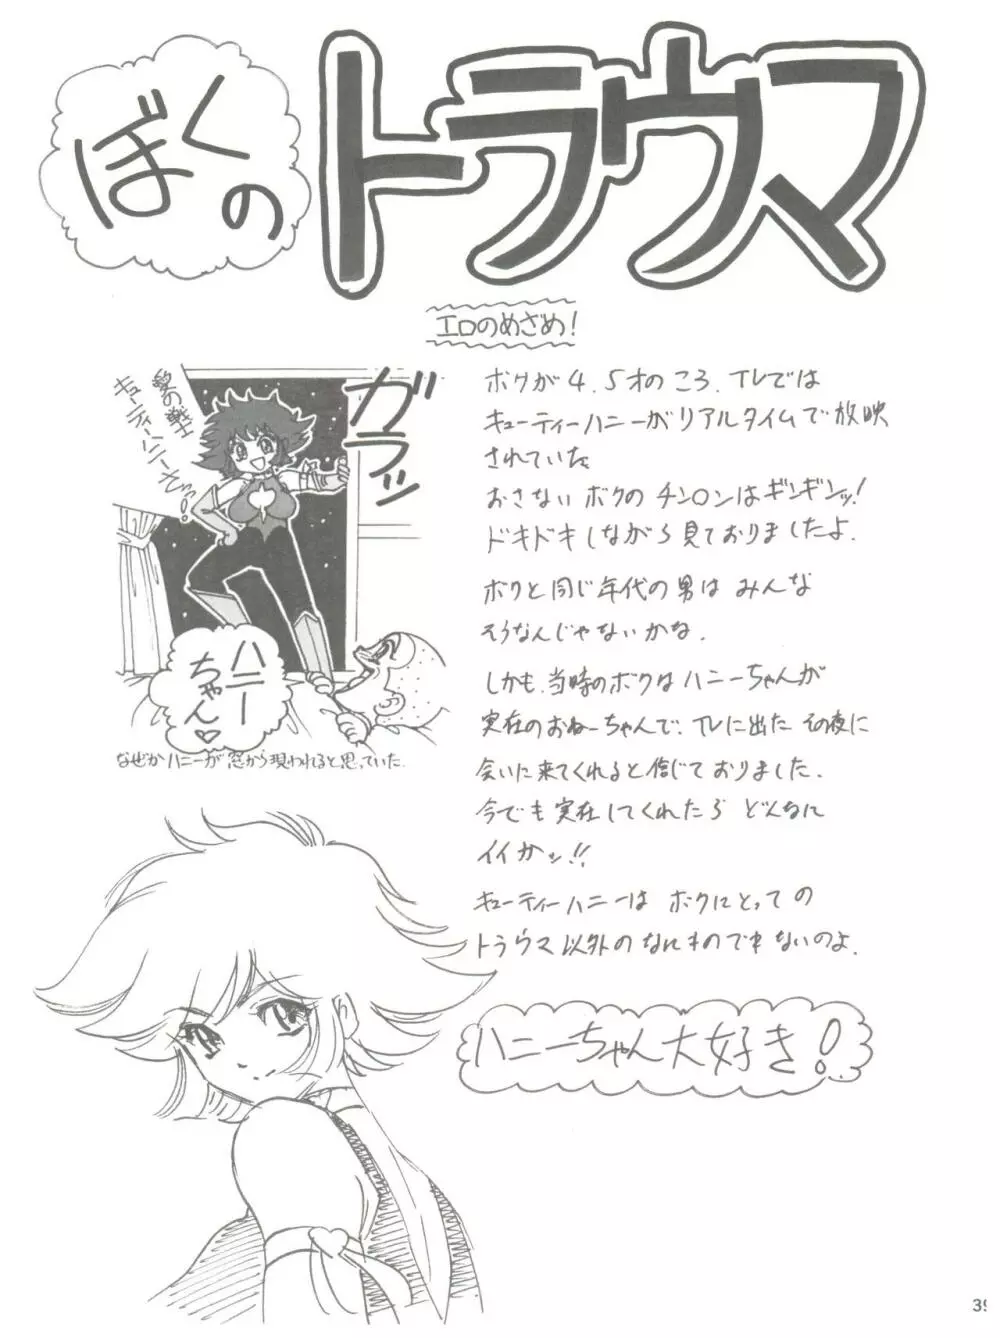 ぼくの
トラウマ
エロのめざめ!
愛の戦士
キューティーハニーよッ!
ガラッ
ハニーちゃん♡
なぜかハニーが窓から現われると思っていた.
ボクが4.5才のころ.TVでは
キューティーハニーがリアルタイムで放映
されていた。
おさないボクのチンロンはギンギンッ!
ドキドキしながら見ておりましたよ.
ボクと同じ年代の男はみんな
そうなんじゃないかな.
しかも.当時のボクはハニーちゃんが
実在のおねーちゃんで、TVに出たその夜に
会いに来てくれると信じておりました.
今でも実在してくれたらどんなに
イイかッ!!
キューティーハニーはボクにとっての
トラウマ以外のなにものでもないのよ.
ハニーちゃん大好き!
39